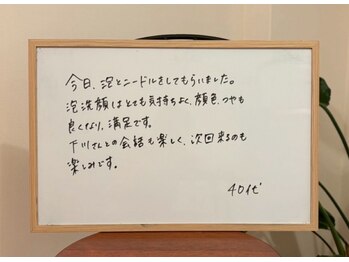 今日、泡とニードルをしてもらいました。
泡洗顔はとても気持ちよく、顔色、つやも
良くなり、満足です。
下川さんとの会話も楽しく、次回来るのも
楽しみです。
40代